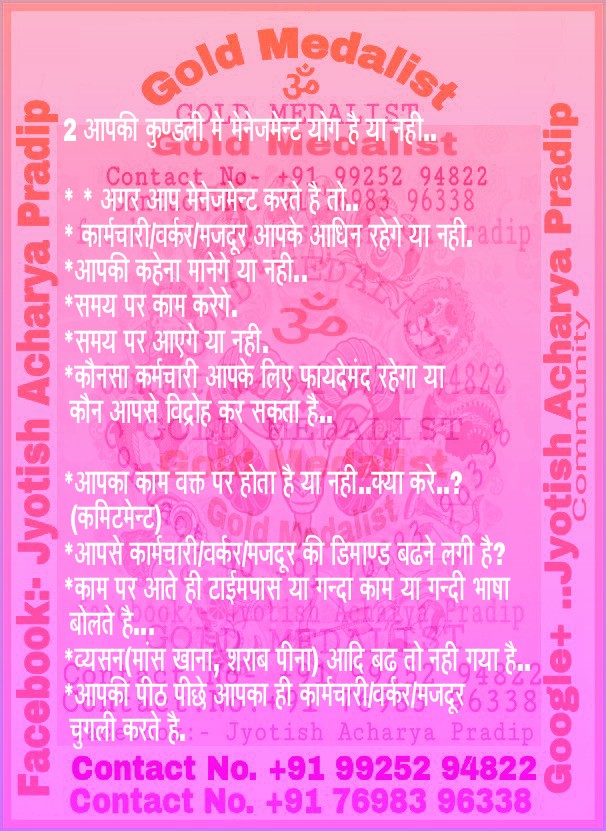 Gold Medalist
ॐ
GOLD MEDALIST
2 आपकी कुण्डली मे मेनेजमेन्ट योग है या नही..
Gold Medalist
Contact No- +91 99252 94822
* * अगर आप मेनेजमेन्ट करते है तो..
* कार्मचारी/वर्कर/मजदूर आपके आधिन रहेगे या नही.
*आपकी कहेना मानेगे या नही..
*समय पर काम करेगे.
*समय पर आएगे या नही.
*कौनसा कर्मचारी आपके लिए फायदेमंद रहेगा या
कौन आपसे विद्रोह कर सकता है..
GOLD MEDALIST
Gold Medalist
*आपका काम वक्त पर होता है या नही..क्या करे..?
(कमिटमेन्ट)
Gold Medalist
*आपसे कार्मचारी/वर्कर/मजदूर की डिमाण्ड बढने लगी है?
*काम पर आते ही टाईमपास या गन्दा काम या गन्दी भाषा
बोलते है...
*व्यसन(मांस खाना, शराब पीना) आदि बढ तो नही गया है..
*आपकी पीठ पीछे आपका ही कार्मचारी/वर्कर/मजदूर
चुगली करते है.
:- Jyotish Acharya Pradip
Contact No. +91 99252 94822
Contact No. +91 76983 96338
Facebook:- Jyotish Acharya Pradip
Google+ ..Jyotish Acharya Pradip
Community